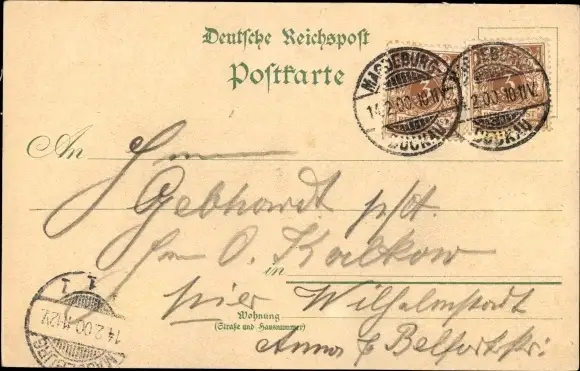 Deutsche Reichspost
Postkarte
MAGDEBURG
14.2.00.10-11V.
BUCKAU
MAGDEBURG
14.2.00.10-11V.
BUCKAU
3
3
An Herrn
Gebhardt p/Adr.
Herrn O. Kalkow
in
hier Wilhelmstadt
Wohnung
(Straße und Hausnummer)
Belfortstr.
1 1
14.2.00.11-12V.
MAGDEBURG